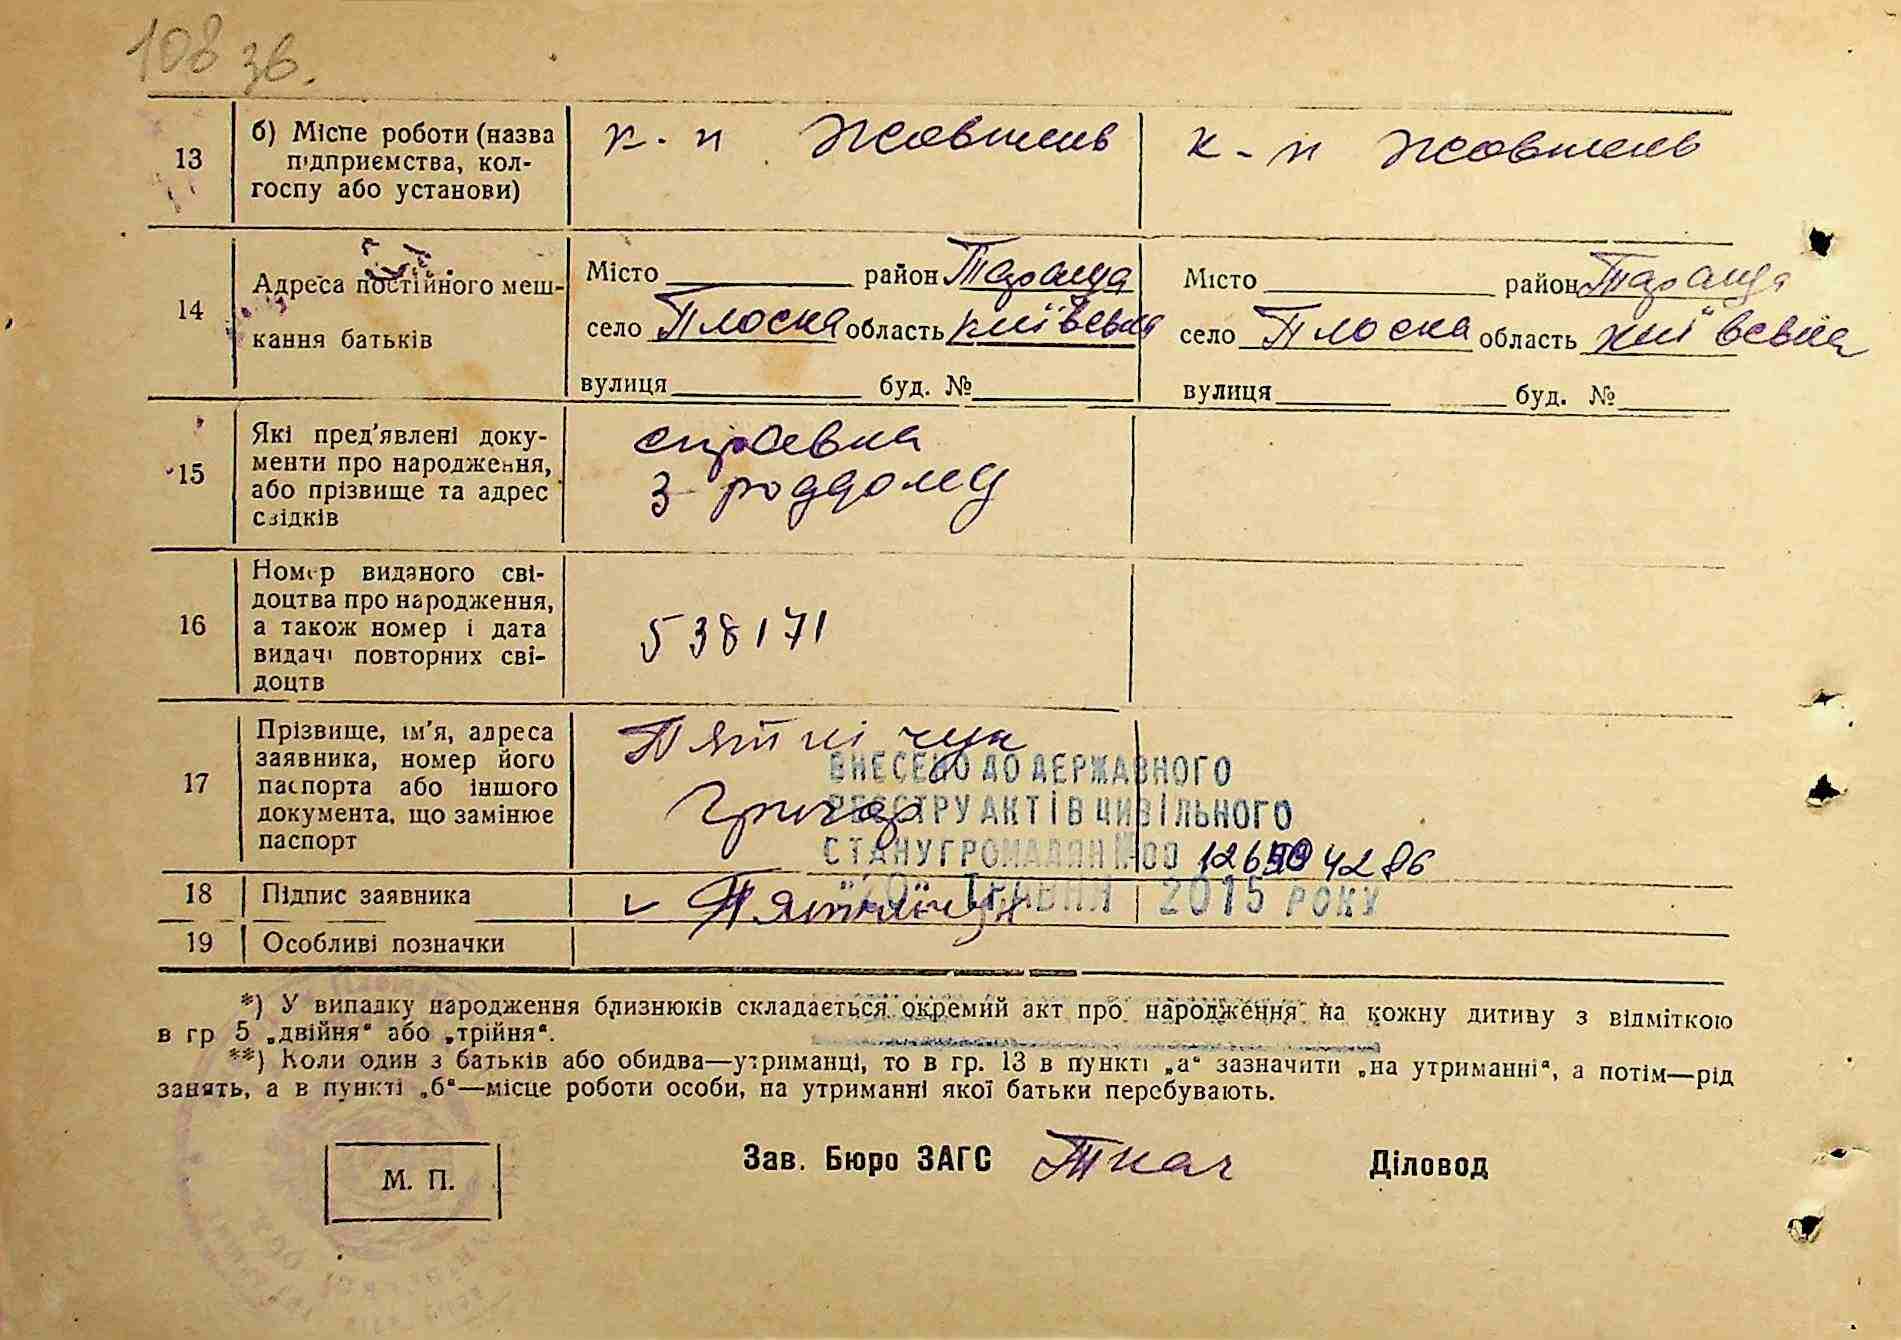 108 зв.
13
б) Місце роботи (назва
підприємства, кол-
госпу або установи)
к-п Жовтень
к-п Жовтень
14
Адреса постійного меш-
кання батьків
Місто район Тараща
село Плоска область Київська
вулиця буд. №
Місто район Тараща
село Плоска область Київська
вулиця буд. №
15
Які пред'явлені доку-
менти про народження,
або прізвище та адрес
свідків
справка
з роддому
16
Номер виданого сві-
доцтва про народження,
а також номер і дата
видачі повторних сві-
доцтв
538171
17
Прізвище, ім'я, адреса
заявника, номер його
паспорта або іншого
документа, що замінює
паспорт
Пятнічук
Григор
ВНЕСЕНО ДО ДЕРЖАВНОГО
РЕЄСТРУ АКТІВ ЦИВІЛЬНОГО
СТАНУ ГРОМАДЯН № 00
"20" ТРАВНЯ 2015 РОКУ
18
Підпис заявника
19
Особливі позначки
*) У випадку народження близнюків складається окремий акт про народження на кожну дитину з відміткою
в гр 5 „двійня“ або „трійня“.
**) Коли один з батьків або обидва—утриманці, то в гр. 13 в пункті „а“ зазначити „на утриманні“, а потім—рід
занять, а в пункті „б“—місце роботи особи, на утриманні якої батьки перебувають.
М. П.
Зав. Бюро ЗАГС Ткач
Діловод